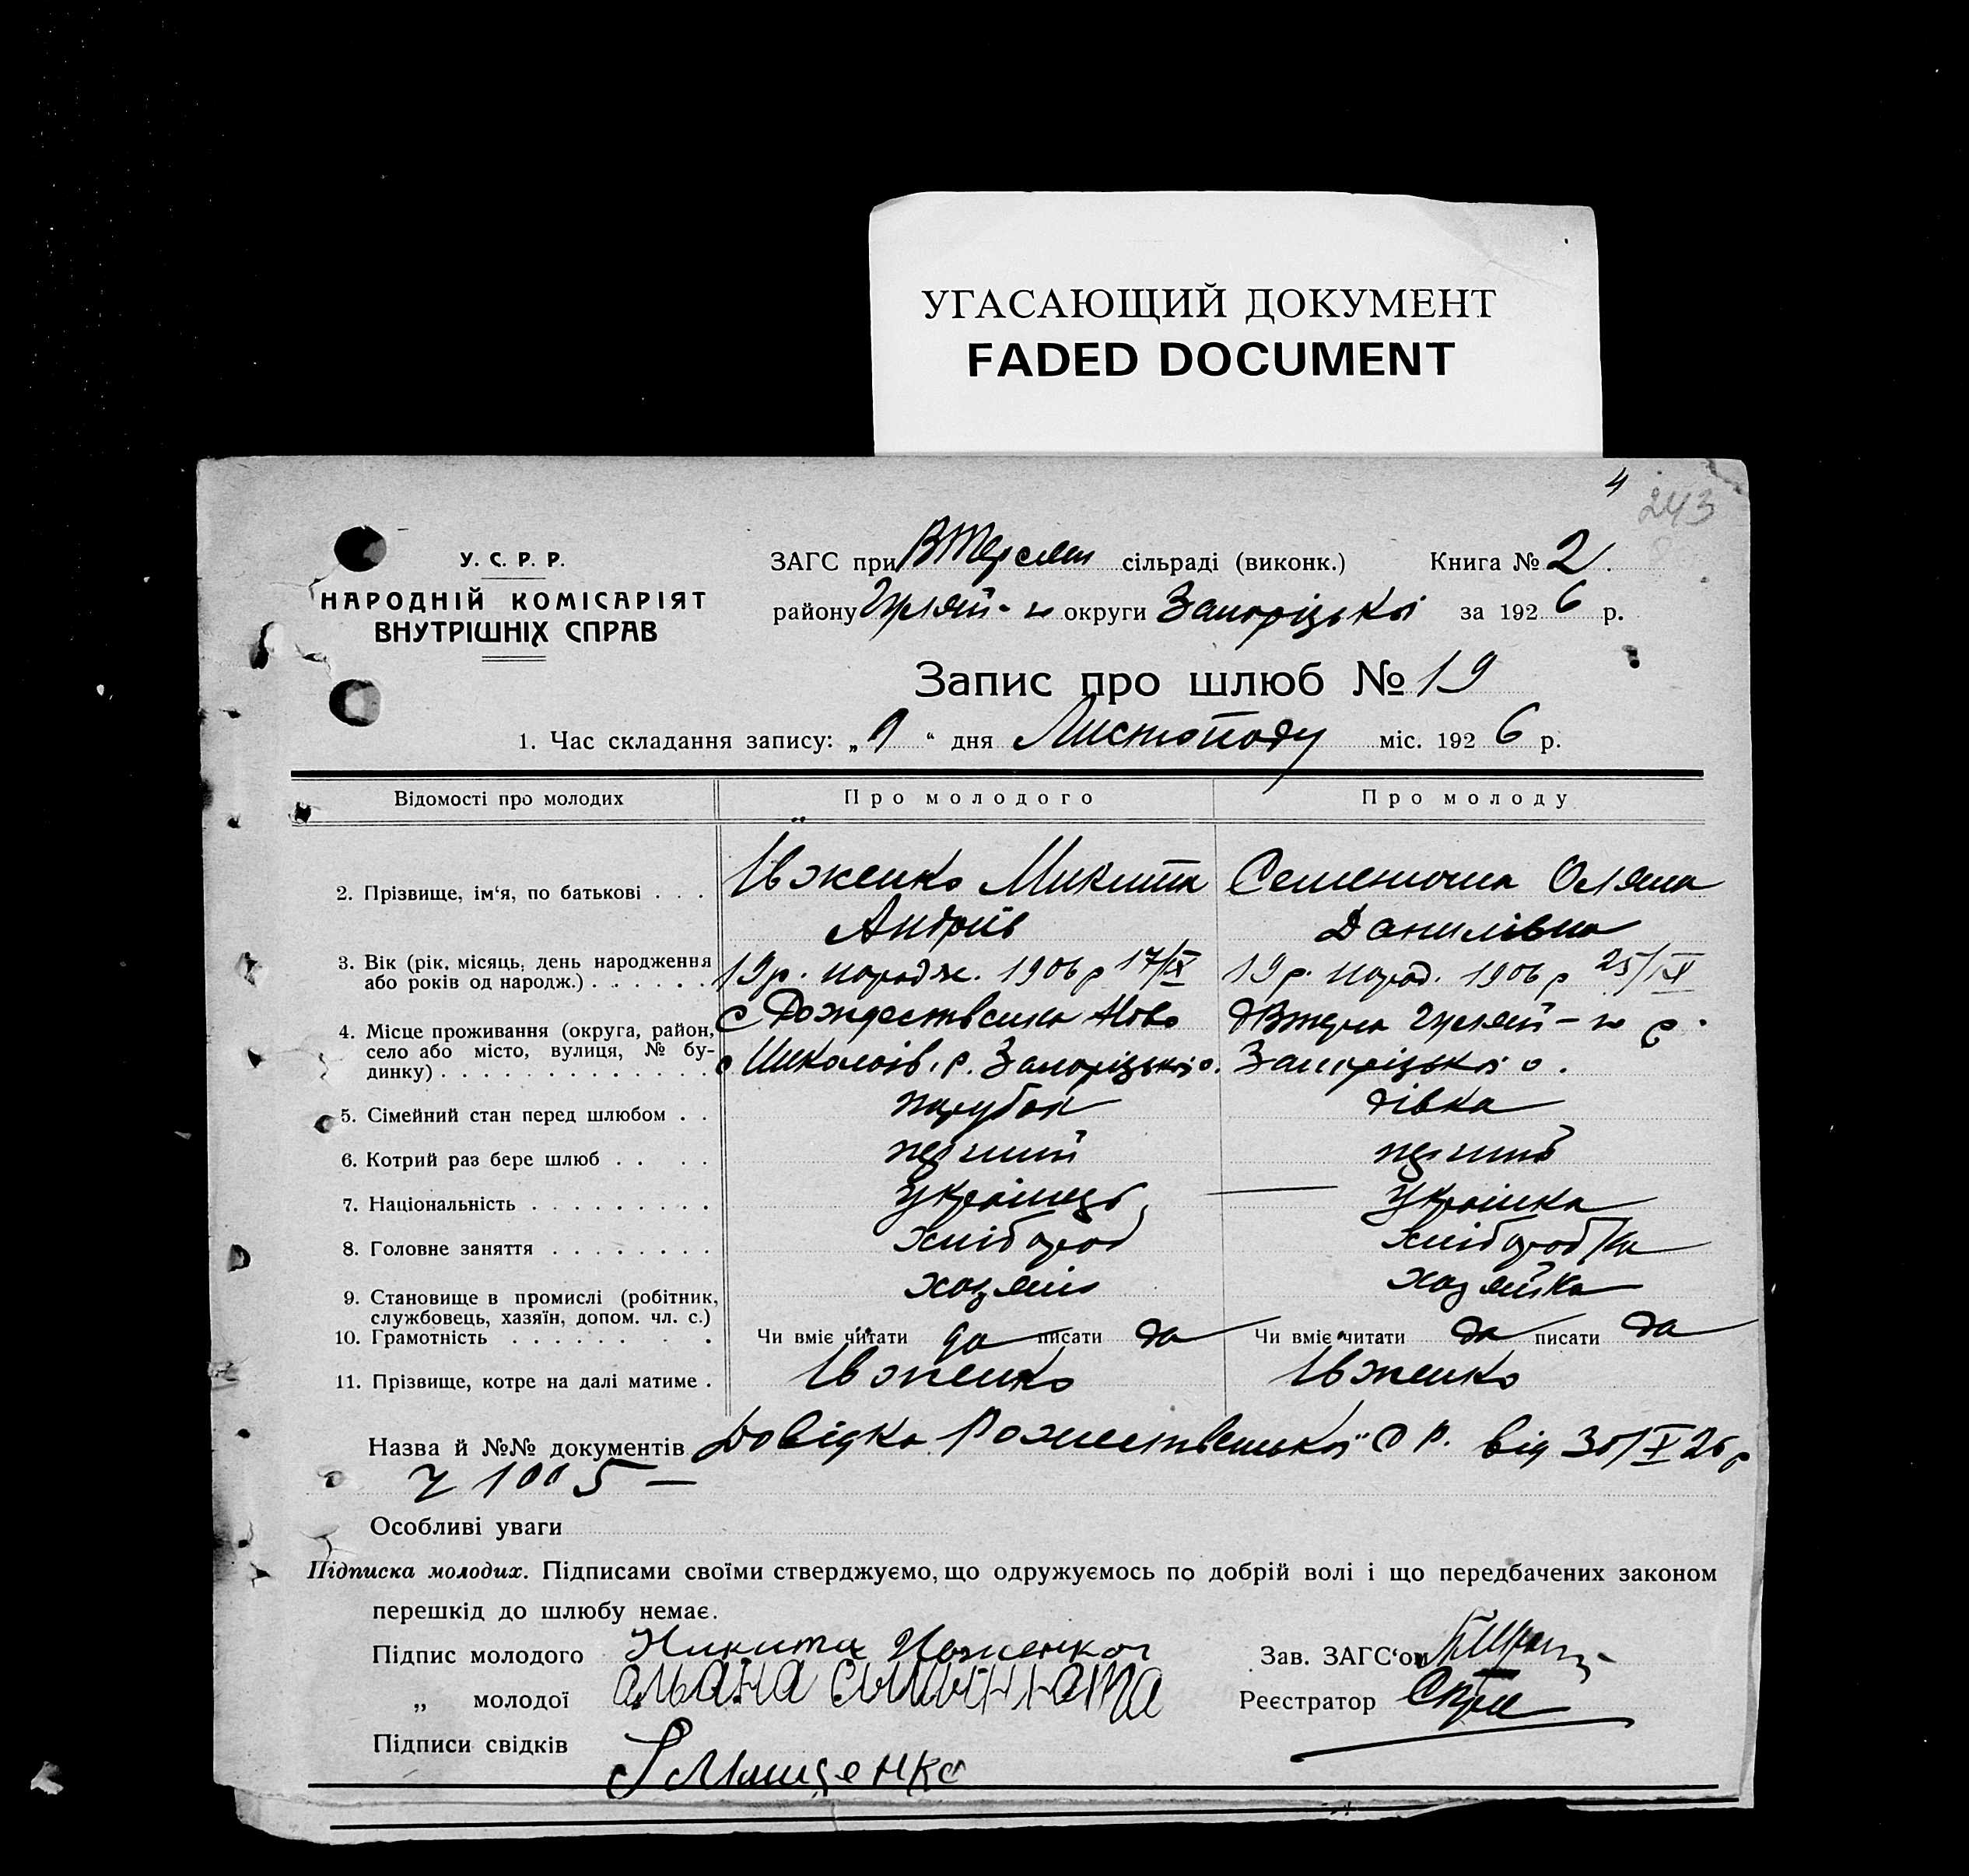 УГАСАЮЩИЙ ДОКУМЕНТ
FADED DOCUMENT
4
243
У. С. Р. Р.
НАРОДНІЙ КОМІСАРІЯТ
ВНУТРІШНІХ СПРАВ
ЗАГС при сільраді (виконк.) Книга № 2.
району Гуляй- округи Запоріцької за 1926 р.
Запис про шлюб № 19
1. Час складання запису: „ “ дня Листопаду міс. 1926 р.
Відомості про молодих Про молодого Про молоду
2. Прізвище, ім‘я, по батькові . . . Ївженко Микита
Андріїв
Оляна
Данилівна
3. Вік (рік, місяць, день народження
або років од народж.) . . . . . . 19 р. народж. 1906 р 17/IX
19 р. народ. 1906 р
4. Місце проживання (округа, район,
село або місто, вулиця, № бу-
динку) . . . . . . . . . . . . . с Рождественка Ново
Миколаїв. р. Запоріцької о.
Гуляй- р.
Запоріцької о.
5. Сімейний стан перед шлюбом . . парубок дівка
6. Котрий раз бере шлюб . . . . перший перший
7. Національність . . . . . . . . . Українець Українка
8. Головне заняття . . . . . . . . хлібороб хлібороб/ка
9. Становище в промислі (робітник,
службовець, хазяїн, допом. чл. с.) хозяїн хозяйка
10. Грамотність . . . . . . . . Чи вміє читати да писати да Чи вміє читати да писати да
11. Прізвище, котре на далі матиме . Ївженко Ївженко
Назва й №№ документів Довідка Рожественської С Р. від 30/X 26 р
1005 —
Особливі уваги
Підписка молодих. Підписами своїми стверджуємо, що одружуємось по добрій волі і що передбачених законом
перешкід до шлюбу немає.
Підпис молодого Никита Зав. ЗАГС‘ом
„ молодої Реєстратор
Підписи свідків